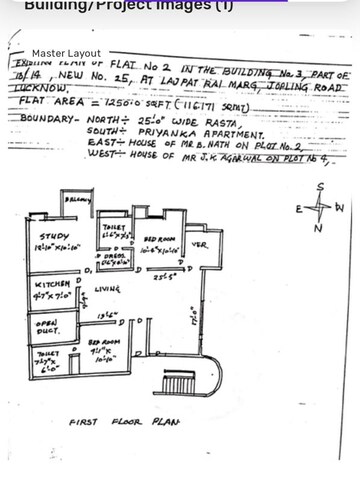 Building/Project Images (1)
Master Layout
EXISTING PLAN OF FLAT NO 2 IN THE BUILDING NO 3, PART OF
10/14, NEW NO. 25, AT LAJPAT RAI MARG, JOPLING ROAD
LUCKNOW.
FLAT AREA = 1250.0 SQFT (116.171 SQMT)
BOUNDARY- NORTH÷ 25'-0" WIDE RASTA,
SOUTH÷ PRIYANKA APARTMENT.
EAST÷ HOUSE OF MR B. NATH ON PLOT NO. 2,
WEST÷ HOUSE OF MR J.K AGARWAL ON PLOT NO 4,
S
E
W
N
BALCONY
STUDY
TOILET
BED ROOM
VER.
DRESS
25'-5"
KITCHEN
9'-7" X 7'-0"
LIVING
OPEN
DUCT.
13'-6"
17'-0"
TOILET
7'-7" X
6'-0"
BED ROOM
9'-1" X
10'-10"
D
D
D
D
D
FIRST FLOOR PLAN